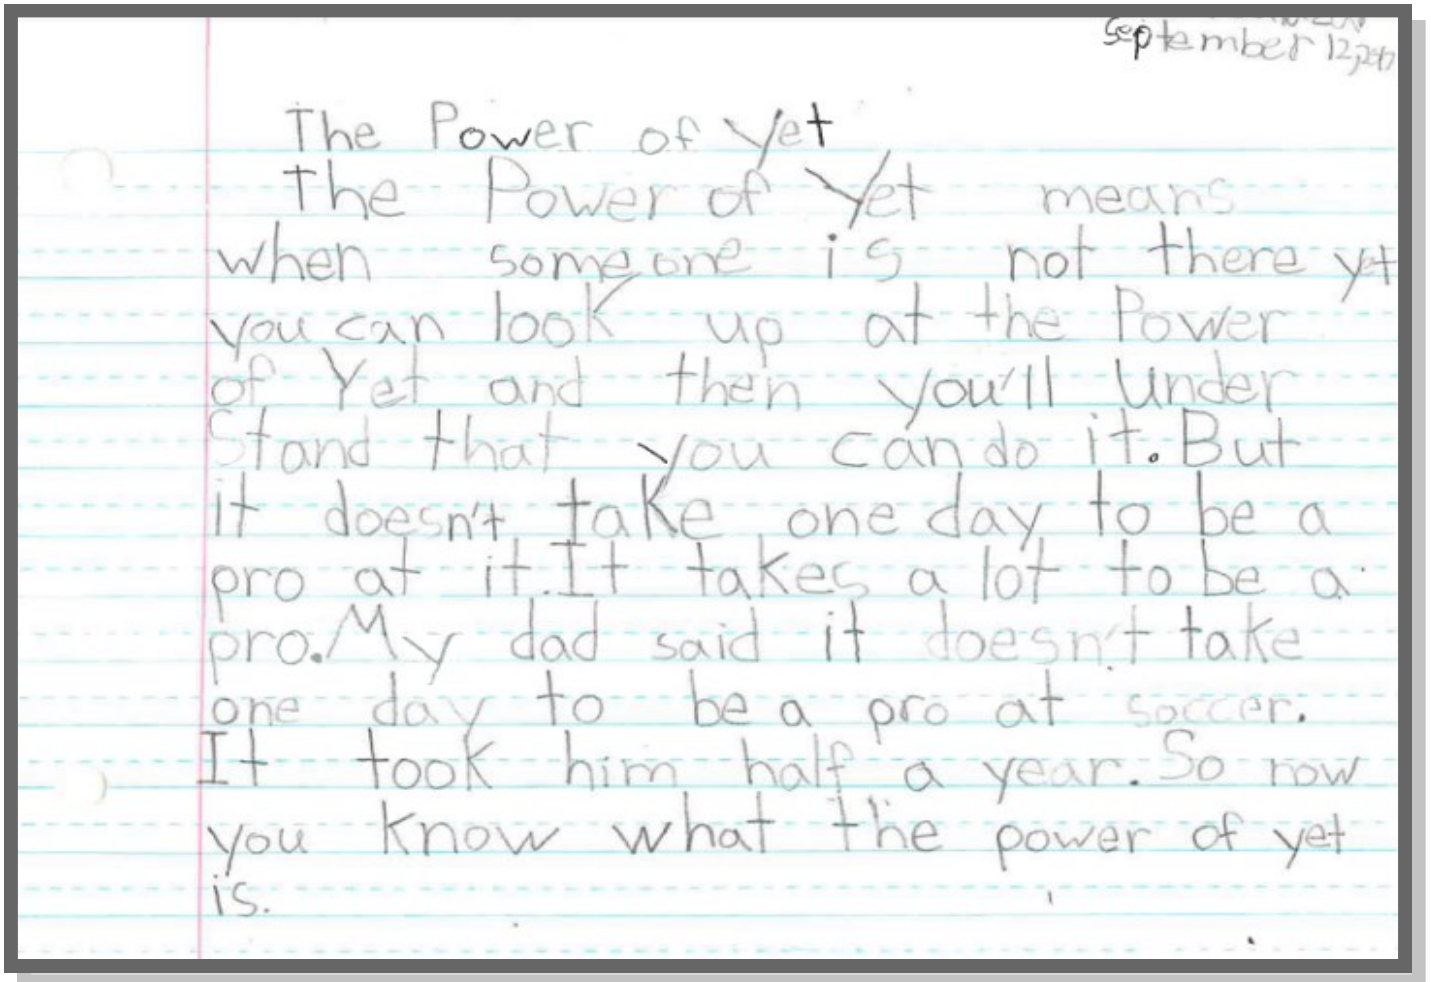 September 12, 2017
The Power of Yet
The Power of Yet means
when someone is not there yet
you can look up at the Power
of Yet and then you'll Under
Stand that you can do it. But
it doesn't take one day to be a
pro at it. It takes a lot to be a
pro. My dad said it doesn't take
one day to be a pro at soccer.
It took him half a year. So now
you know what the power of yet
is.